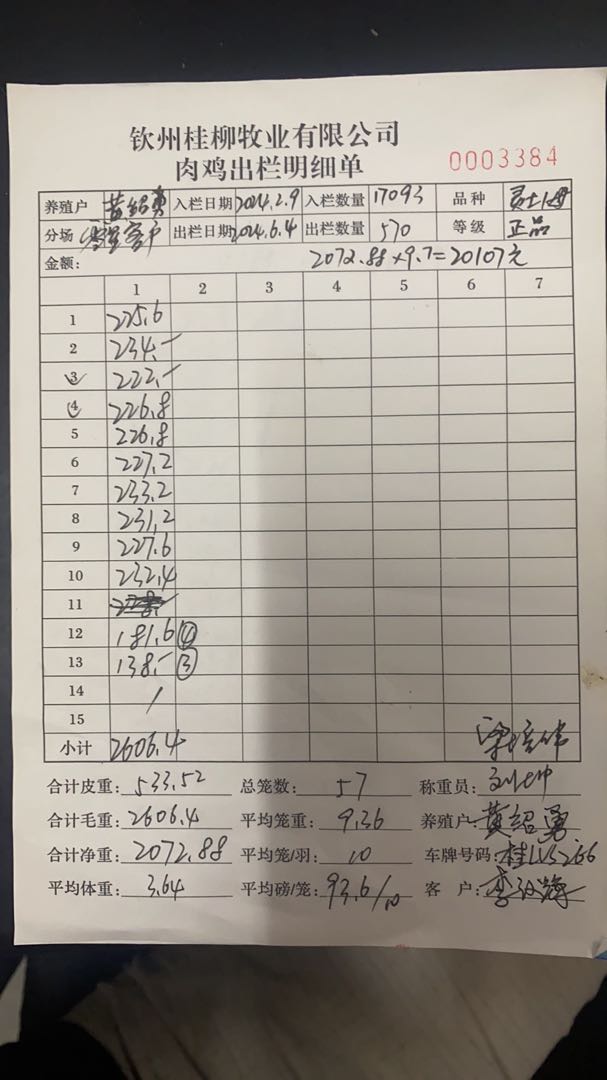 钦州桂柳牧业有限公司
肉鸡出栏明细单
0003384
养殖户 黄绍勇 入栏日期 2024.2.9 入栏数量 17093 品种
分场 客户 出栏日期 2024.6.4 出栏数量 570 等级 正品
金额: 2072.88×9.7=20107元
1 2 3 4 5 6 7
1 225.6
2 234.-
3 222.-
4 226.8
5 226.8
6 227.2
7 233.2
8 231.2
9 227.6
10 232.4
11
12 181.6 ④
13 138.- ③
14 /
15
小计 2606.4
合计皮重: 533.52 总笼数: 57 称重员:
合计毛重: 2606.4 平均笼重: 9.36 养殖户: 黄绍勇
合计净重: 2072.88 平均笼/羽: 10 车牌号码:
平均体重: 3.64 平均磅/笼: 93.6/10 客户: